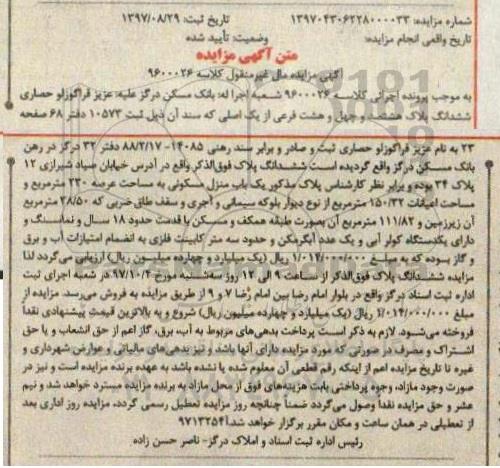 شماره مزایده: ۱۳۹۷۰۴۳۰۶۲۲۸۰۰۰۰۳۳ تاریخ ثبت: ۱۳۹۷/۰۸/۲۹
تاریخ واقعی انجام مزایده: وضعیت: تأیید شده
متن آگهی مزایده
آگهی مزایده مال غیرمنقول کلاسه ۹۶۰۰۰۲۶
به موجب پرونده اجرائی کلاسه ۹۶۰۰۰۲۶ شعبه اجرا له: بانک مسکن درگز علیه: عزیز قراگوزلو حصاری
ششدانگ پلاک هشتصد و چهل و هشت فرعی از یک اصلی که سند آن ذیل ثبت ۱۰۵۷۳ دفتر ۶۸ صفحه
۲۳ به نام عزیز قراگوزلو حصاری ثبت و صادر و برابر سند رهنی ۱۴۰۸۵- ۸۸/۲/۱۷ دفتر ۳۲ درگز در رهن
بانک مسکن درگز واقع گردیده است ششدانگ پلاک فوق‌الذکر واقع در آدرس خیابان صیاد شیرازی ۱۲
پلاک ۲۴ بوده و برابر نظر کارشناس پلاک مذکور یک باب منزل مسکونی به مساحت عرصه ۲۳۰ مترمربع و
مساحت اعیانات ۱۵۰/۳۲ مترمربع از نوع دیوار بلوکه سیمانی و آجری و سقف طاق ضربی که ۳۸/۵۰ مترمربع
آن زیرزمین و ۱۱۱/۸۲ مترمربع آن بصورت طبقه همکف و مسکن با قدمت حدود ۱۸ سال و نماسنگ و
دارای یکدستگاه کولر آبی و یک عدد آبگرمکن و حدود سه متر کابینت فلزی به انضمام امتیازات آب و برق
و گاز بوده که به مبلغ ۱/۰۱۴/۰۰۰/۰۰۰ ریال (یک میلیارد و چهارده میلیون ریال) ارزیابی می‌گردد لذا
مزایده ششدانگ پلاک فوق‌الذکر از ساعت ۹ الی ۱۲ روز سه‌شنبه مورخ ۹۷/۱۰/۴ در شعبه اجرای ثبت
اداره ثبت اسناد درگز واقع در بلوار امام رضا بین امام رضا ۷ و ۹ از طریق مزایده به فروش می‌رسد. مزایده از
مبلغ ۱/۰۱۴/۰۰۰/۰۰۰ ریال (یک میلیارد و چهارده میلیون ریال) شروع و به بالاترین قیمت پیشنهادی نقداً
فروخته می‌شود. لازم به ذکر است پرداخت بدهی‌های مربوط به آب، برق، گاز اعم از حق انشعاب و یا حق
اشتراک و مصرف در صورتی که مورد مزایده دارای آنها باشد و نیز بدهی‌های مالیاتی و عوارض شهرداری و
غیره تا تاریخ مزایده اعم از اینکه رقم قطعی آن معلوم شده یا نشده باشد به عهده برنده مزایده است و نیز در
صورت وجود مازاد، وجوه پرداختی بابت هزینه‌های فوق از محل مازاد به برنده مزایده مسترد خواهد شد و نیم
عشر و حق مزایده نقداً وصول می‌گردد ضمناً چنانچه روز مزایده تعطیل رسمی گردد، مزایده روز اداری بعد
از تعطیلی در همان ساعت و مکان مقرر برگزار خواهد شد.آ۹۷۱۳۲۵۴
رئیس اداره ثبت اسناد و املاک درگز- ناصر حسن زاده